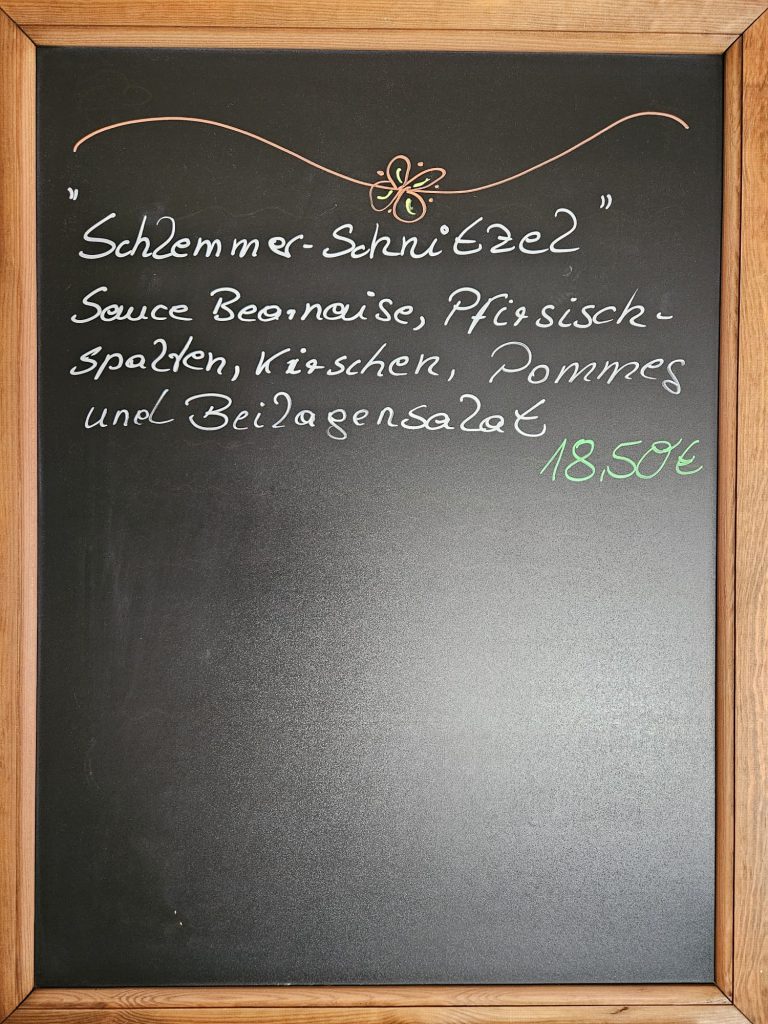 "Schlemmer-Schnitzel"
Sauce Bearnaise, Pfirsisch-
spalten, Kirschen, Pommes
und Beilagensalat
18,50€